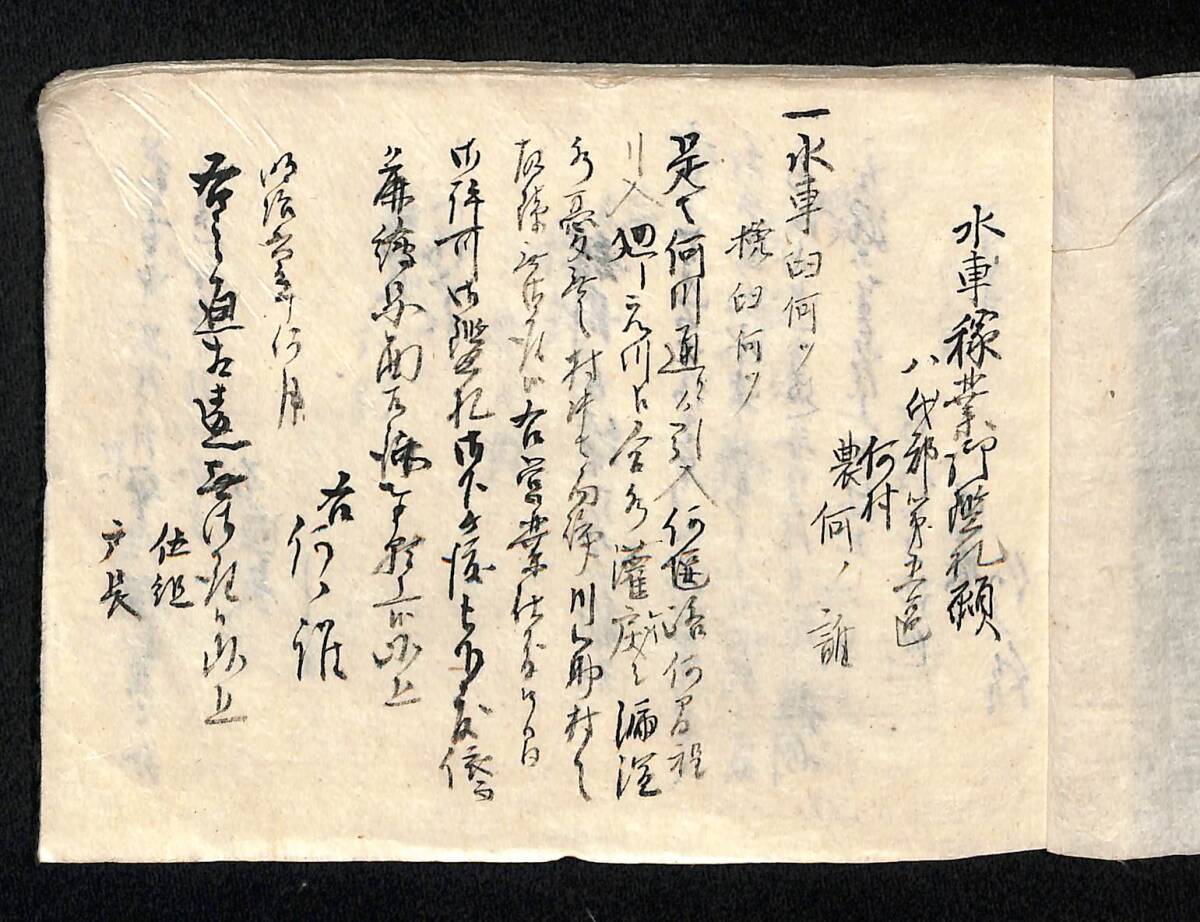 水車稼業御鑑札願
八代郡第五区
何村
農何ノ誰
一水車臼何ツ
挽臼何ツ
是ハ何川通ゟ引入何堰路何間程
引入廻シ元川ト合水灌漑之漏滔
水憂無之村中ハ勿論川下助村々
故障無御座候ニ付右営業仕度候間
御許可御鑑札御下ケ渡被成下度依而
麁絵図面相添奉願上候以上
右
何ノ誰
明治六年何月
右之通相違無御座候以上
伍組
戸長